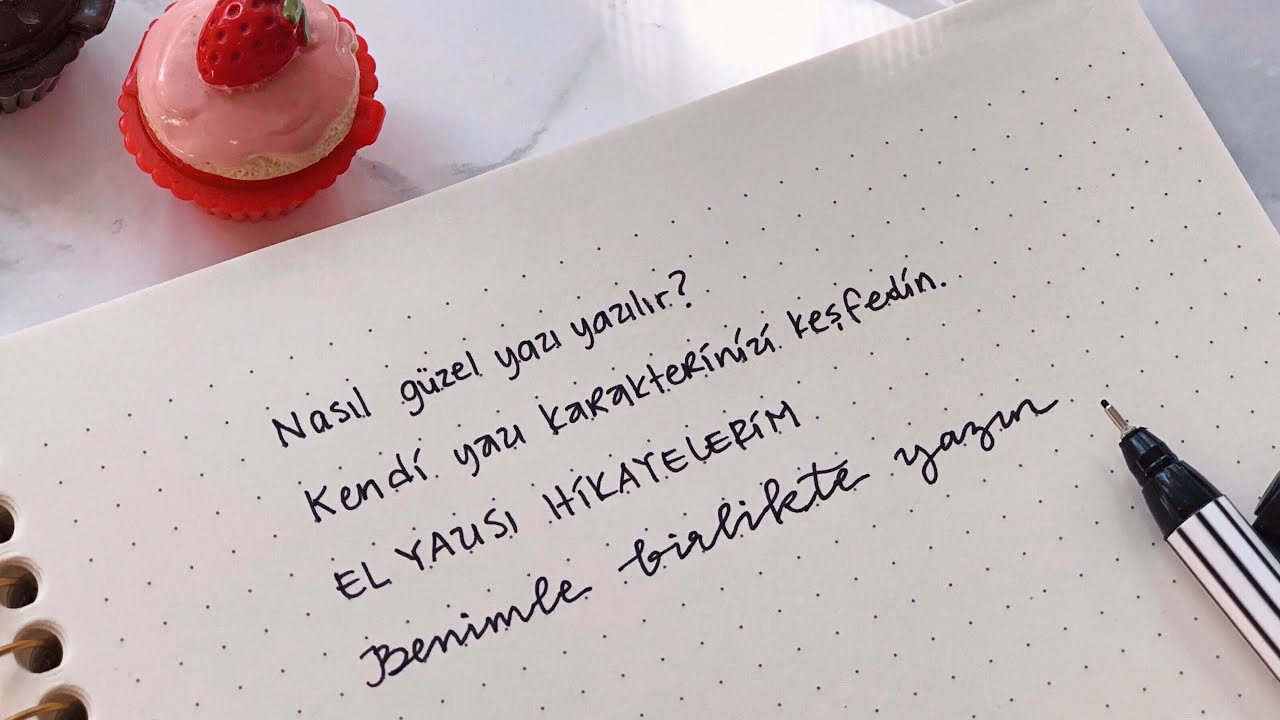 Nasıl güzel yazı yazılır?
Kendi yazı karakterinizi keşfedin.
EL YAZISI HİKAYELERİM
Benimle birlikte yazın